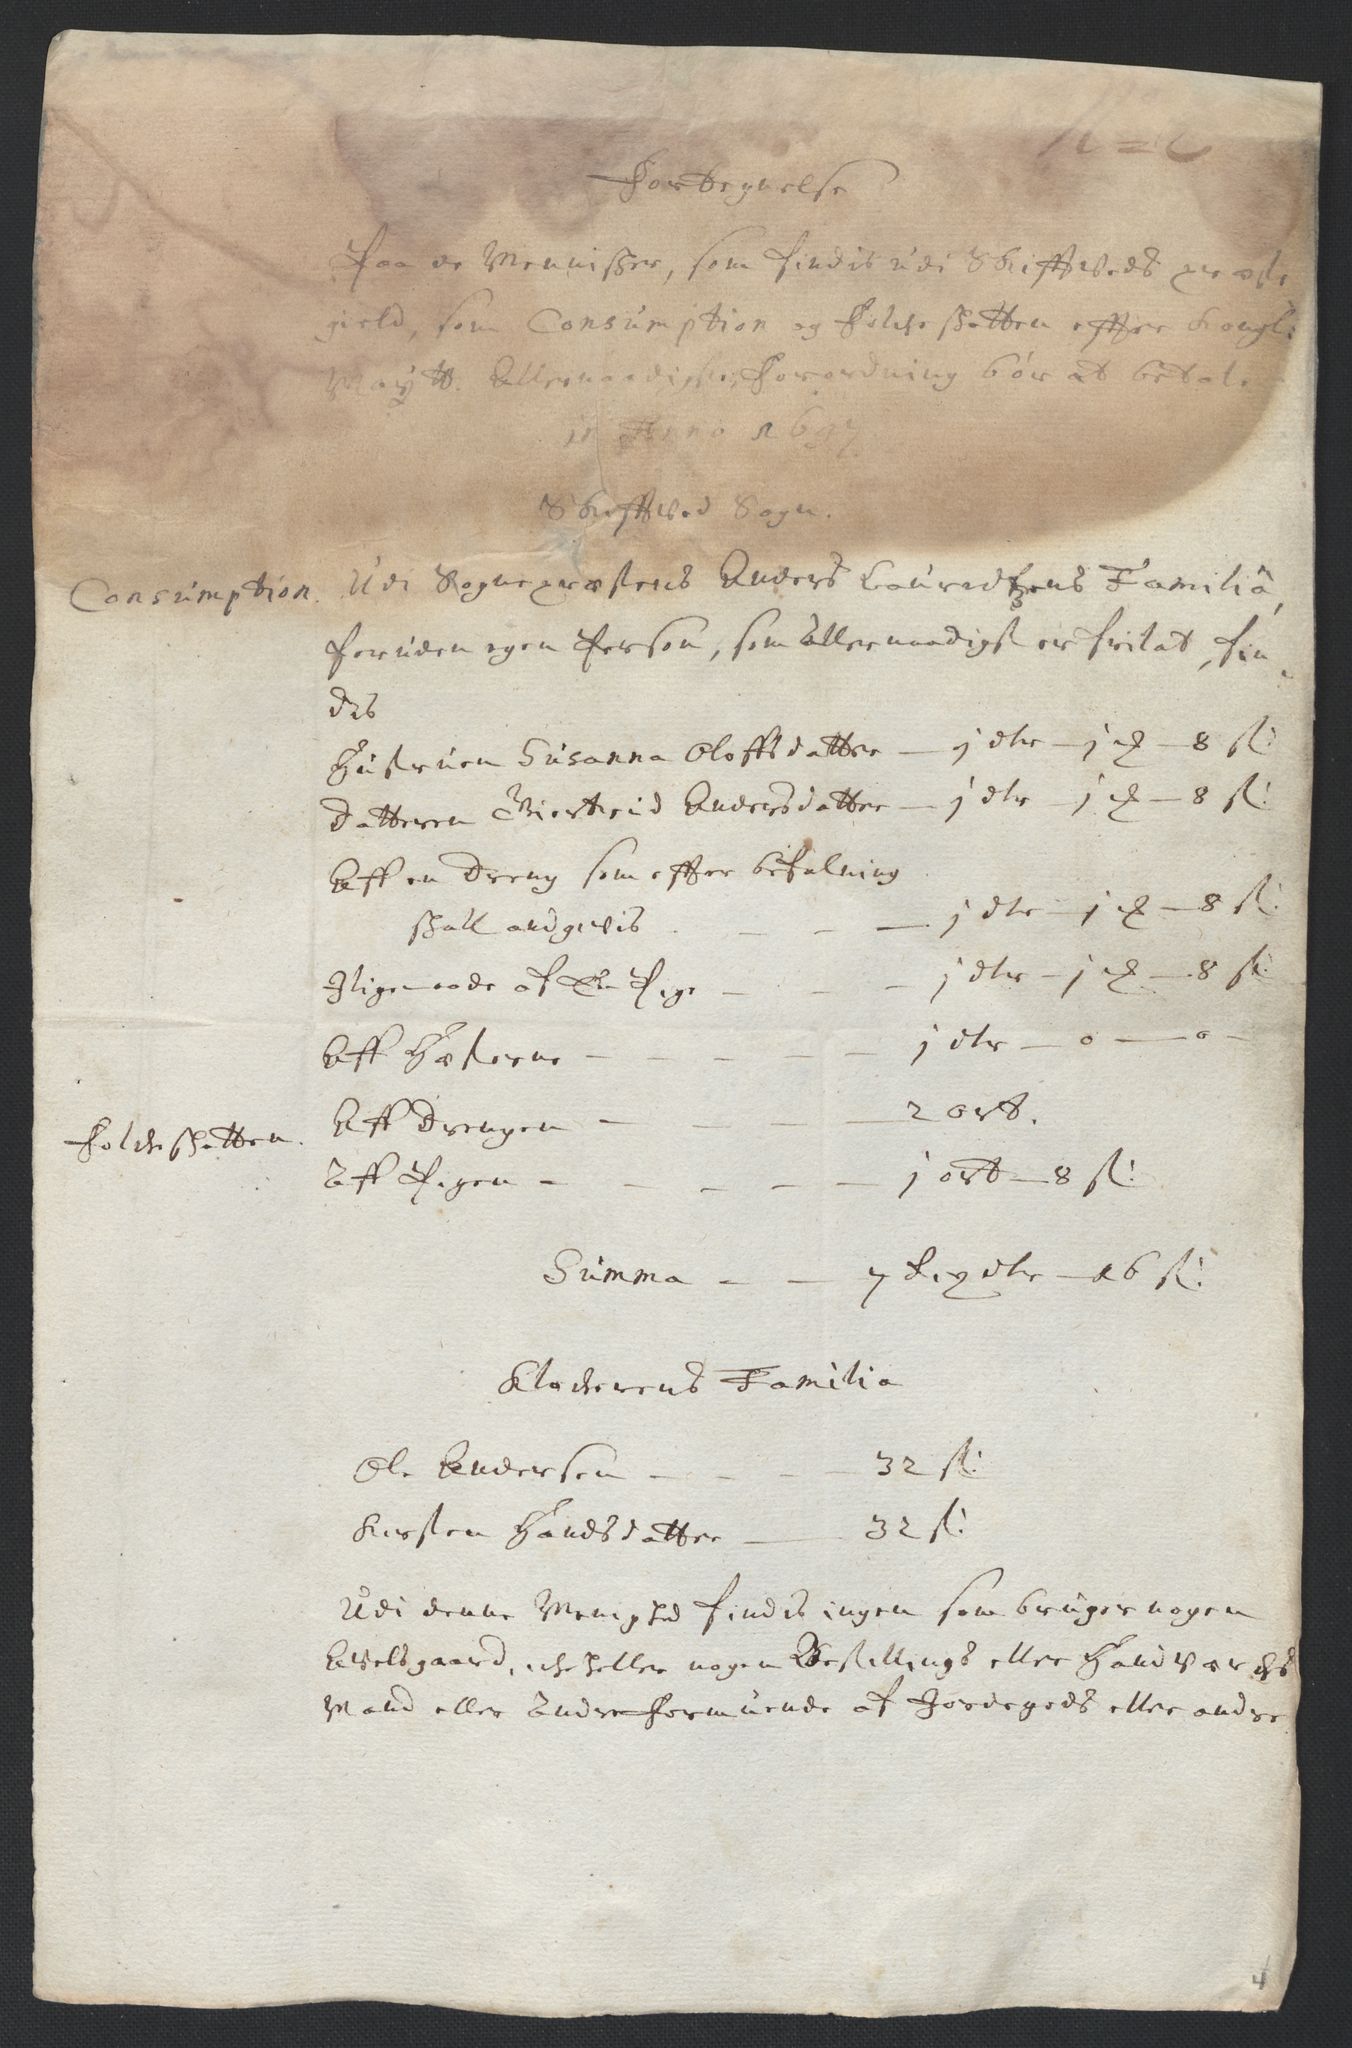 Fortegnelse
Paa de Mennisker, som findis udi Skiffweds præste
gield, som Consumption og Folcheskatten effter Kongl:
Maÿtt. Allernaadigste Forordning bör at betale
in Anno 1697
Skiffwed Sogn.
Consumption. Udi Sognepræstens Anders Lauridtzens Familia,
foruden egen Person, som allernaadigst er frilat, fin
dis
Hustruen Susanna Oloffsdatter — 1 dlr — 1 ℳ — 8 sk:
Datteren Anders datter — 1 dlr 1 ℳ — 8 sk:
Aff en Dreng som effter befalning
skall andgivis — — — 1 dlr — 1 ℳ — 8 sk:
Jligemaade af En Pige — — — 1 dlr — 1 ℳ — 8 sk:
Aff Hæsterne — — — — — 1 dlr — 0 — 0 —
Folcheskatten. Aff Drengen — — — — — 2 ort.
Aff Pigen — — — — — 1 ort — 8 sk:
Summa — — 7 Rixdlr — 16 sk:
Klocherens Familia
Ole Andersen — — — — 32 sk:
Kirsten Handsdatter — — 32 sk:
Udi denne Menighed findis ingen som bruger nogen
Avelsgaard, iche heller nogen Bestillings eller Handverchs
Mand eller Andre Formuende af Jordegods eller andre
4